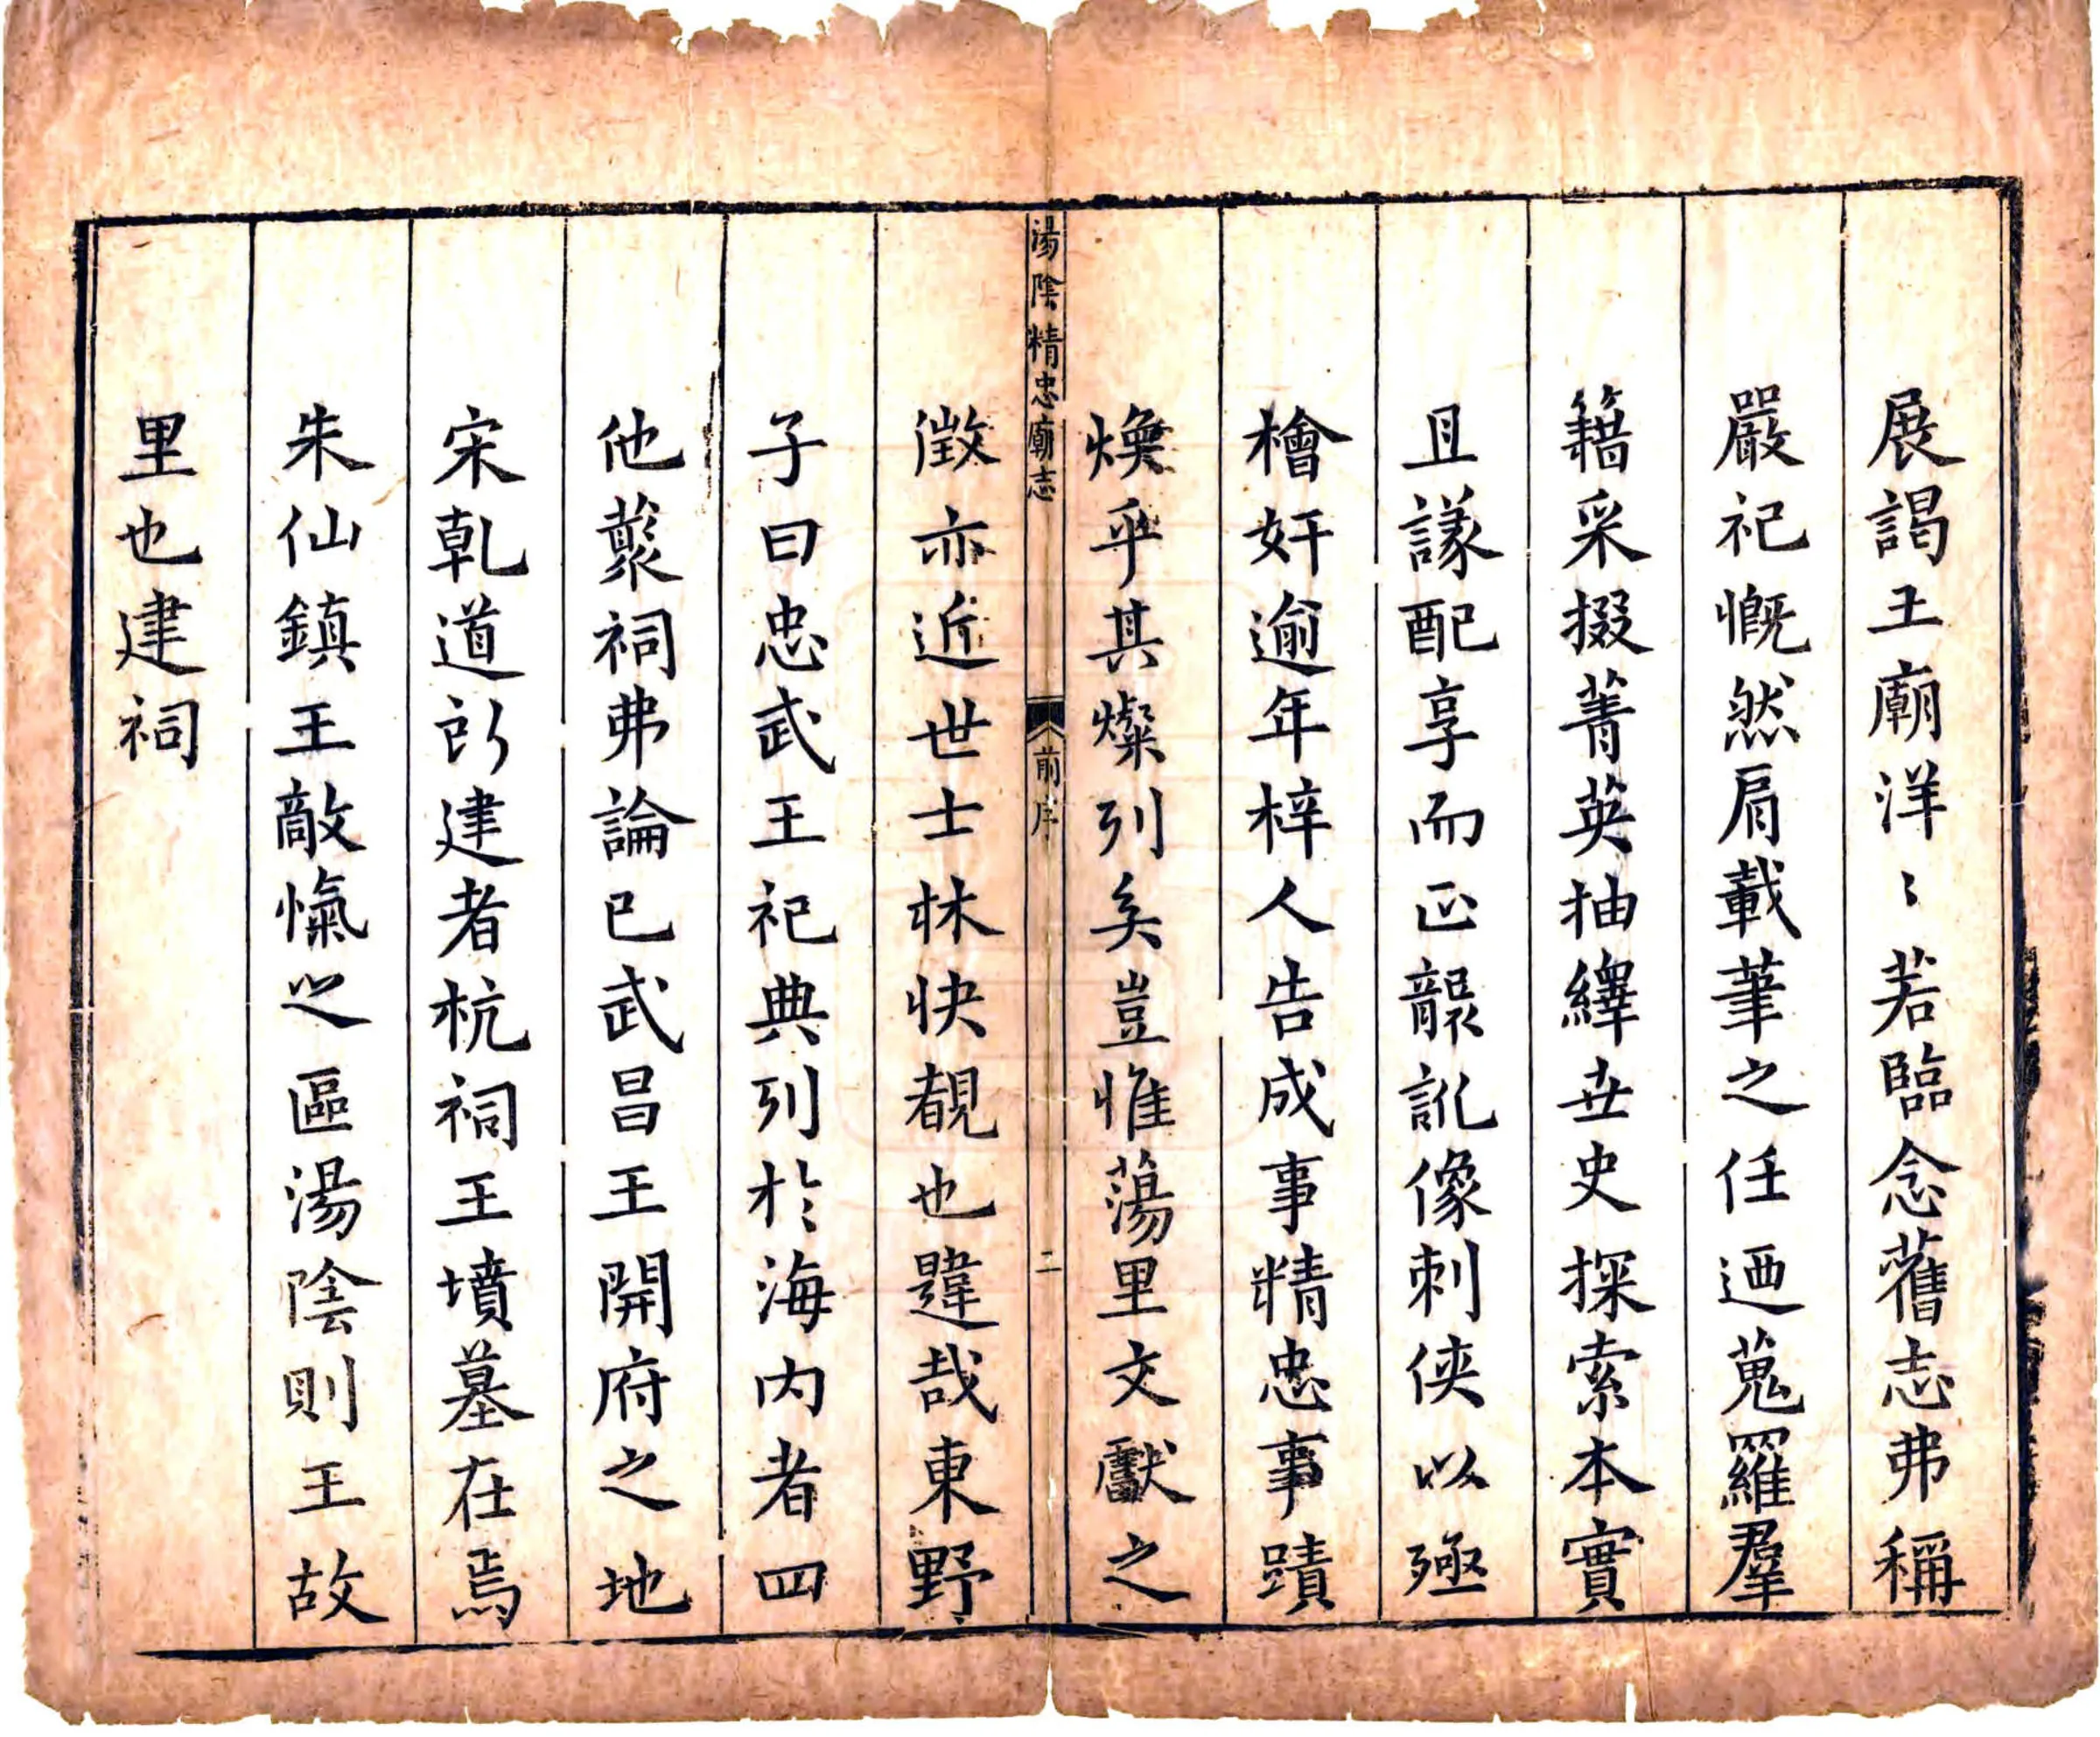 展謁王廟洋〻若臨念舊志弗稱
嚴祀慨然肩載筆之任迺蒐羅羣
籍采掇菁英抽繹世史探索本實
且議配享而正龍訛像刺俠以殛
檜奸逾年梓人告成事精忠事蹟
煥乎其燦列矣豈惟蕩里文獻之
湯陰精忠廟志
前序
二
徵亦近世士林快覩也韙哉東野
子曰忠武王祀典列於海內者四
他叢祠弗論已武昌王開府之地
宋乾道所建者杭祠王墳墓在焉
朱仙鎮王敵愾之區湯陰則王故
里也建祠